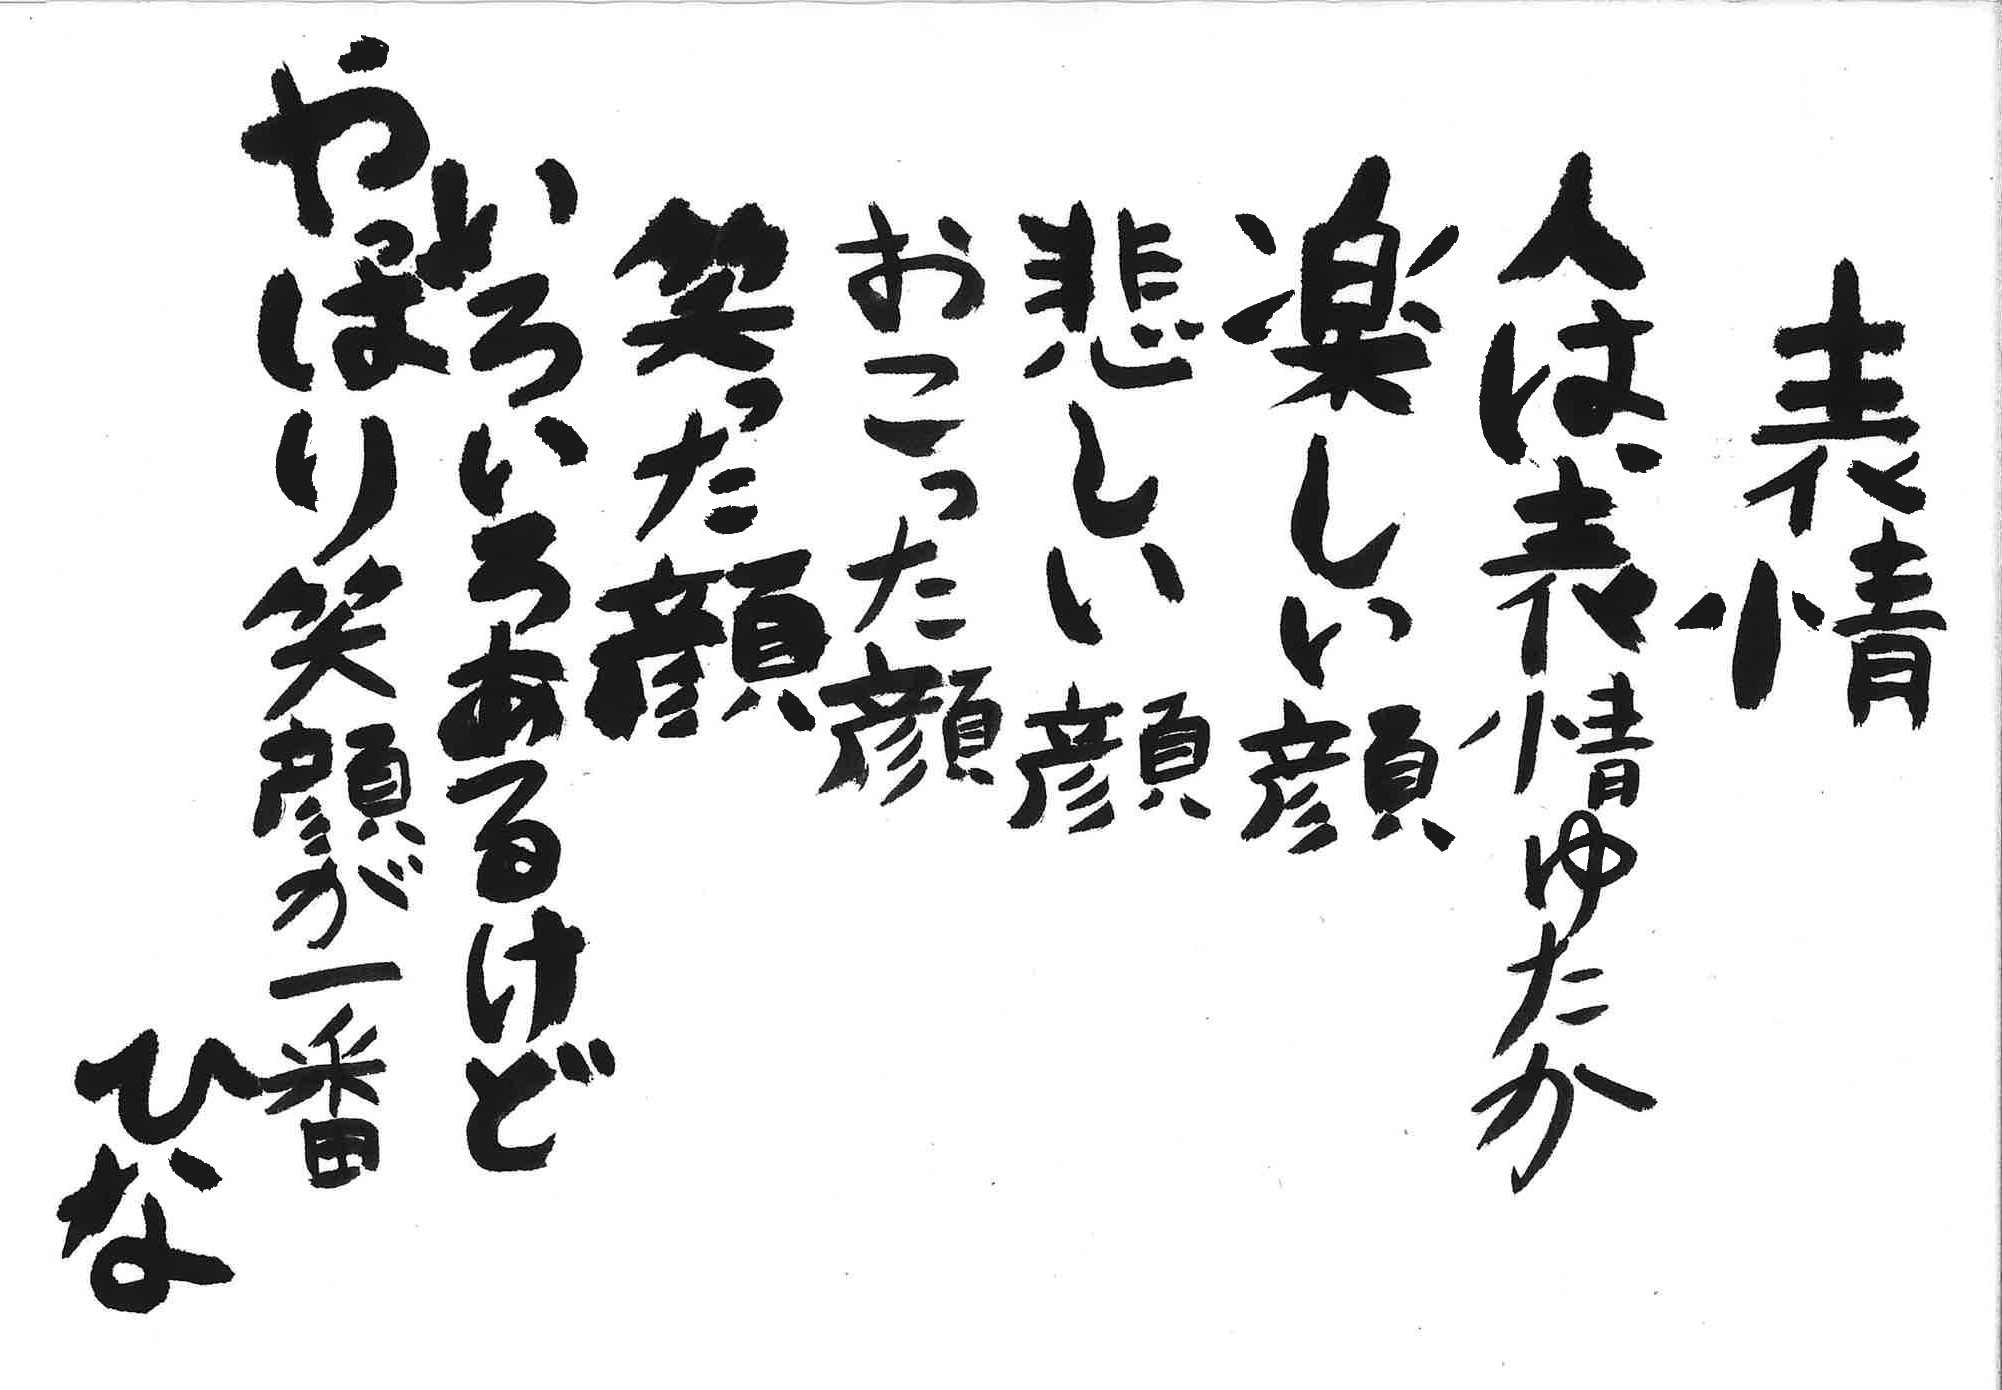 表情
人は、表情ゆたか
楽しい顔
悲しい顔
おこった顔
笑った顔
いろいろあるけど
やっぱり笑顔が一番
ひな